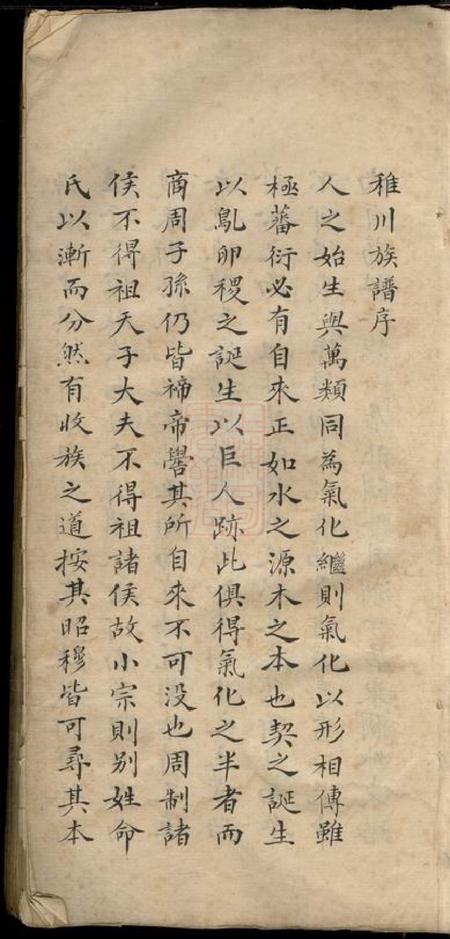 稚川族譜序
人之始生與萬類同為氣化繼則氣化以形相傳雖
極蕃衍必有自來正如水之源木之本也契之誕生
以鳦卵稷之誕生以巨人跡此俱得氣化之半者而
商周子孫仍皆禘帝嚳其所自來不可没也周制諸
侯不得祖天子大夫不得祖諸侯故小宗則别姓命
氏以漸而分然有收族之道按其昭穆皆可尋其本